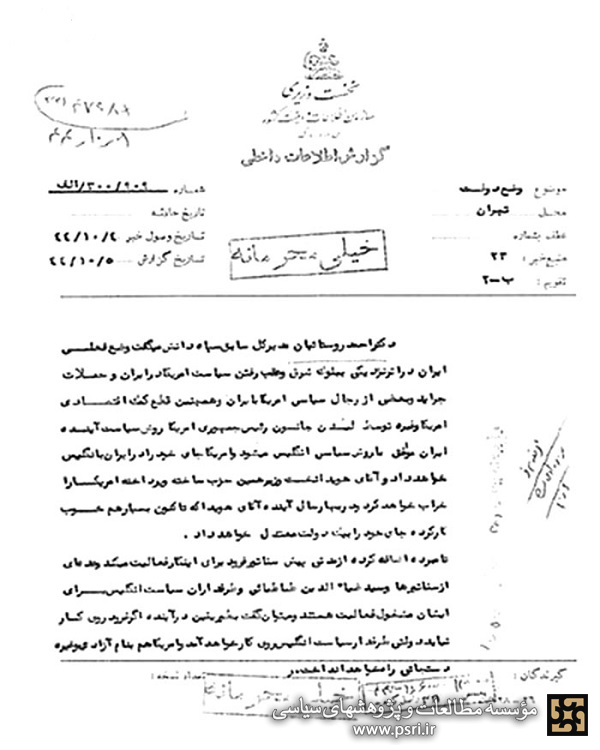 نخست وزیری
سازمان اطلاعات و امنیت کشور
گزارش اطلاعات داخلی
موضوع وضع دولت
محل تهران
عطف بشماره
منبع خبر : ۲۳
تقویم : ب-۲
شماره ۹۰۹/۳۰۰/الف
تاریخ حادثه
تاریخ وصول خبر ۴۴/۱۰/۲
تاریخ گزارش ۴۴/۱۰/۵
خیلی محرمانه
دکتر احمد روستائیان مدیرکل سابق سپاه دانش میگفت وضع فعلی
ایران در اثر نزدیکی به بلوک شرق و عقب رفتن سیاست امریکا در ایران و حملات
جراید و بعضی از رجال سیاسی امریکا بایران و همچنین قطع کمک اقتصادی
امریکا و غیره توسط لیندن جانسون رئیس جمهوری امریکا روش سیاست آینده
ایران موافق با روش سیاسی انگلیس میشود و امریکا جای خود را در ایران بانگلیس
خواهد داد و آقای هویدا نخست وزیر همین حزب ساخته و پرداخته امریکا را
خراب خواهد کرد و در بهار سال آینده آقای هویدا که تاکنون بسیار هم خوب
کار کرده جای خود را بیک دولت معتدل خواهد داد .
نامبرده اضافه کرده از مدتی پیش سناتور فرود برای اینکار فعالیت میکند و عده‌ای
از سناتورها و سید ضیاء الدین طباطبائی و طرفداران سیاست انگلیس برای
ایشان مشغول فعالیت هستند و میتوان گفت بطور یقین در آینده اگر فرود روی کار
نیاید دولتی طرفدار سیاست انگلیس روی کار خواهد آمد و امریکا هم بنام آزادی و غیره
دستهائی راه خواهد انداخت
گیرندگان :
تعداد نسخه :
خیلی محرمانه
مؤسسه مطالعات و پژوهشهای سیاسی
www.psri.ir